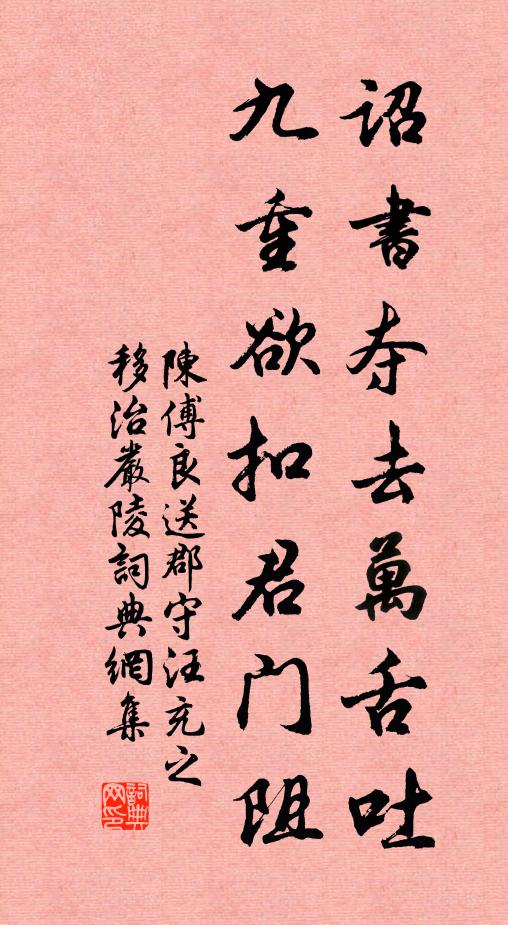 詔書夺去萬舌吐
九重欲扣君门阻
陳傅良送郡守汪充之
移治嚴陵詞典網集
詞典网印